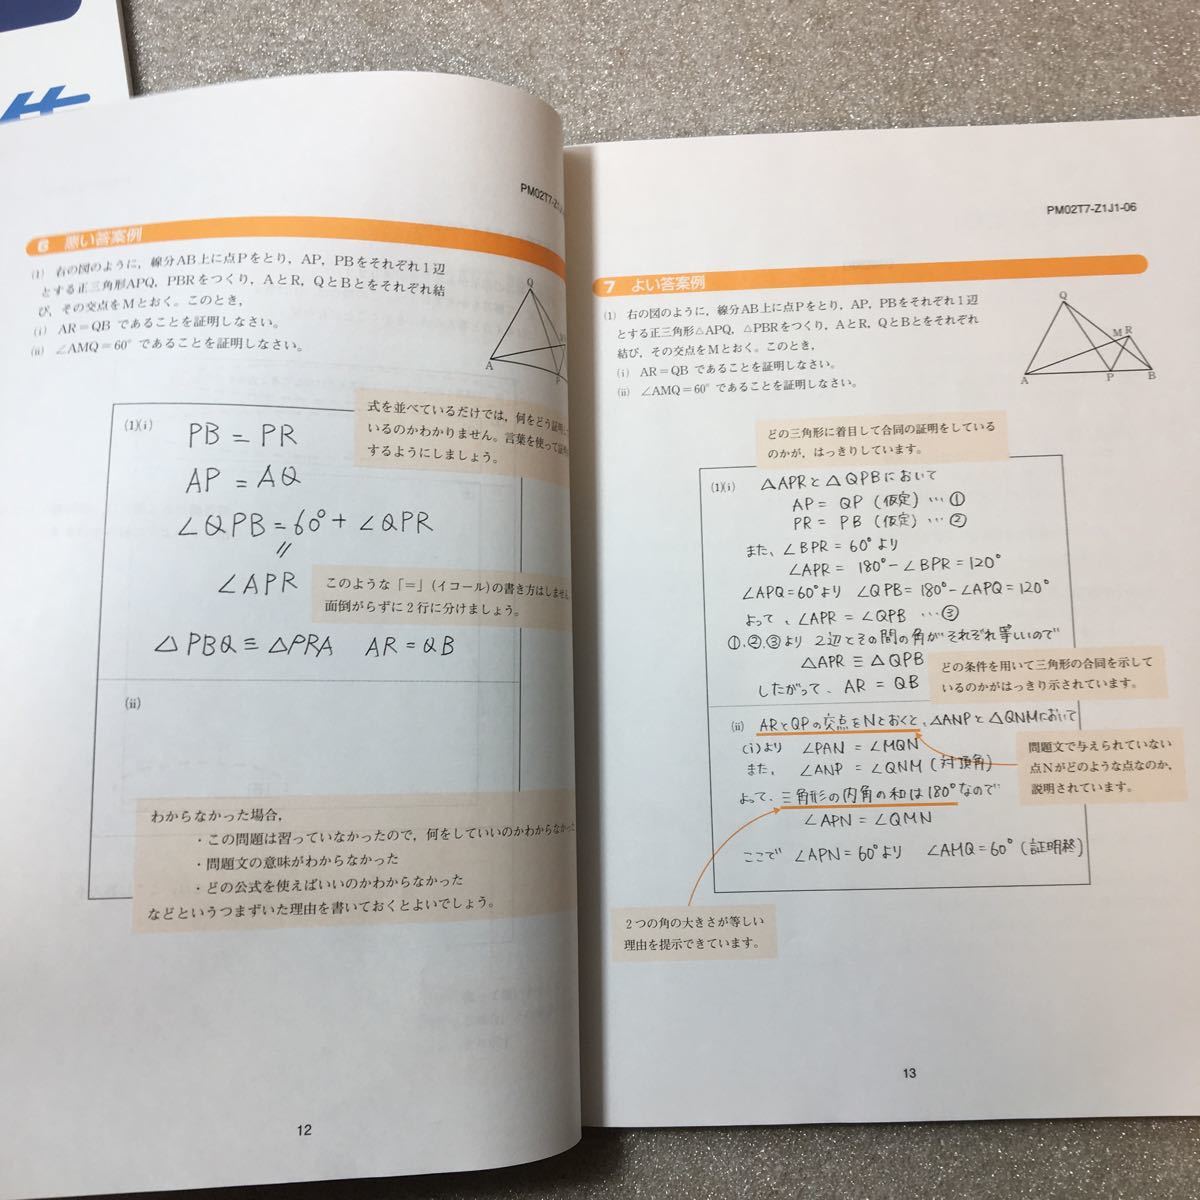 PM02T7-Z1J
6 悪い答案例
(1) 右の図のように，線分AB上に点Pをとり，AP，PBをそれぞれ1辺
とする正三角形APQ，PBRをつくり，AとR，QとBとをそれぞれ結
び，その交点をMとおく。このとき，
(i) AR＝QB であることを証明しなさい。
(ii) ∠AMQ＝60° であることを証明しなさい。
Q
A
P
式を並べているだけでは，何をどう証明
いるのかわかりません。言葉を使って
するようにしましょう。
(1)(i)
PB = PR
AP = AQ
∠QPB = 60° + ∠QPR
〃
∠APR
このような「＝」(イコール)の書き方はしません
面倒がらずに2行に分けましょう。
△PBQ ≡ △PRA AR = QB
(ii)
わからなかった場合，
・この問題は習っていなかったので，何をしていいのかわからなかった
・問題文の意味がわからなかった
・どの公式を使えばいいのかわからなかった
などというつまずいた理由を書いておくとよいでしょう。
12
PM02T7-Z1J1-06
7 よい答案例
(1) 右の図のように，線分AB上に点Pをとり，AP，PBをそれぞれ1辺
とする正三角形△APQ，△PBRをつくり，AとR，QとBとをそれぞれ
結び，その交点をMとおく。このとき，
(i) AR＝QB であることを証明しなさい。
(ii) ∠AMQ＝60° であることを証明しなさい。
Q
M R
A P B
どの三角形に着目して合同の証明をしている
のかが，はっきりしています。
(1)(i) △APRと△QPBにおいて
AP = QP (仮定) … ①
PR = PB (仮定) … ②
また、∠BPR = 60°より
∠APR = 180° − ∠BPR = 120°
∠APQ = 60°より ∠QPB = 180° − ∠APQ = 120°
よって、∠APR = ∠QPB … ③
①、②、③より 2辺とその間の角がそれぞれ等しいので
△APR ≡ △QPB
したがって、AR = QB
どの条件を用いて三角形の合同を示して
いるのかがはっきり示されています。
(ii) ARとQPの交点をNとおくと、△ANPと△QNMにおいて
(i)より ∠PAN = ∠MQN
また、 ∠ANP = ∠QNM (対頂角)
よって、三角形の内角の和は180°なので
∠APN = ∠QMN
ここで ∠APN = 60°より ∠AMQ = 60° (証明終)
問題文で与えられていない
点Nがどのような点なのか，
説明されています。
2つの角の大きさが等しい
理由を提示できています。
13